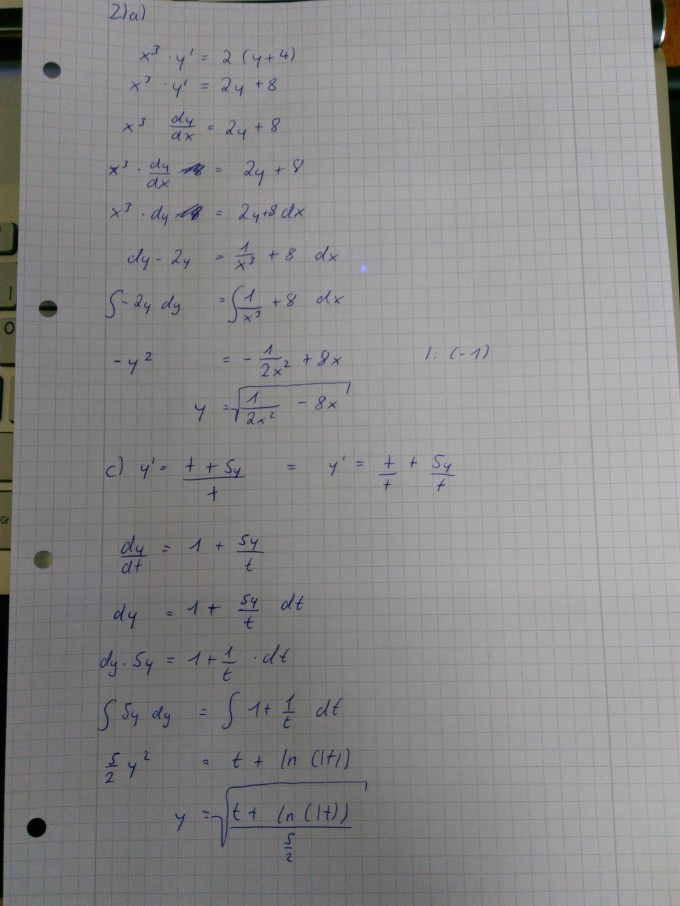 2)a)
x³ · y' = 2 (y+4)
x³ · y' = 2y + 8
x³ dy/dx = 2y + 8
x³ · dy/dx = 2y + 8
x³ · dy = 2y+8 dx
dy - 2y = 1/x³ + 8 dx
∫-2y dy = ∫ 1/x³ + 8 dx
-y² = - 1/2x² + 8x |: (-1)
y = √(1/2x² - 8x)
c) y' = t + 5y/t = y' = t/t + 5y/t
dy/dt = 1 + 5y/t
dy = 1 + 5y/t dt
dy · 5y = 1 + 1/t · dt
∫ 5y dy = ∫ 1 + 1/t dt
5/2 y² = t + ln (|t|)
y = √(t + ln (|t|) / 5/2)
Gr